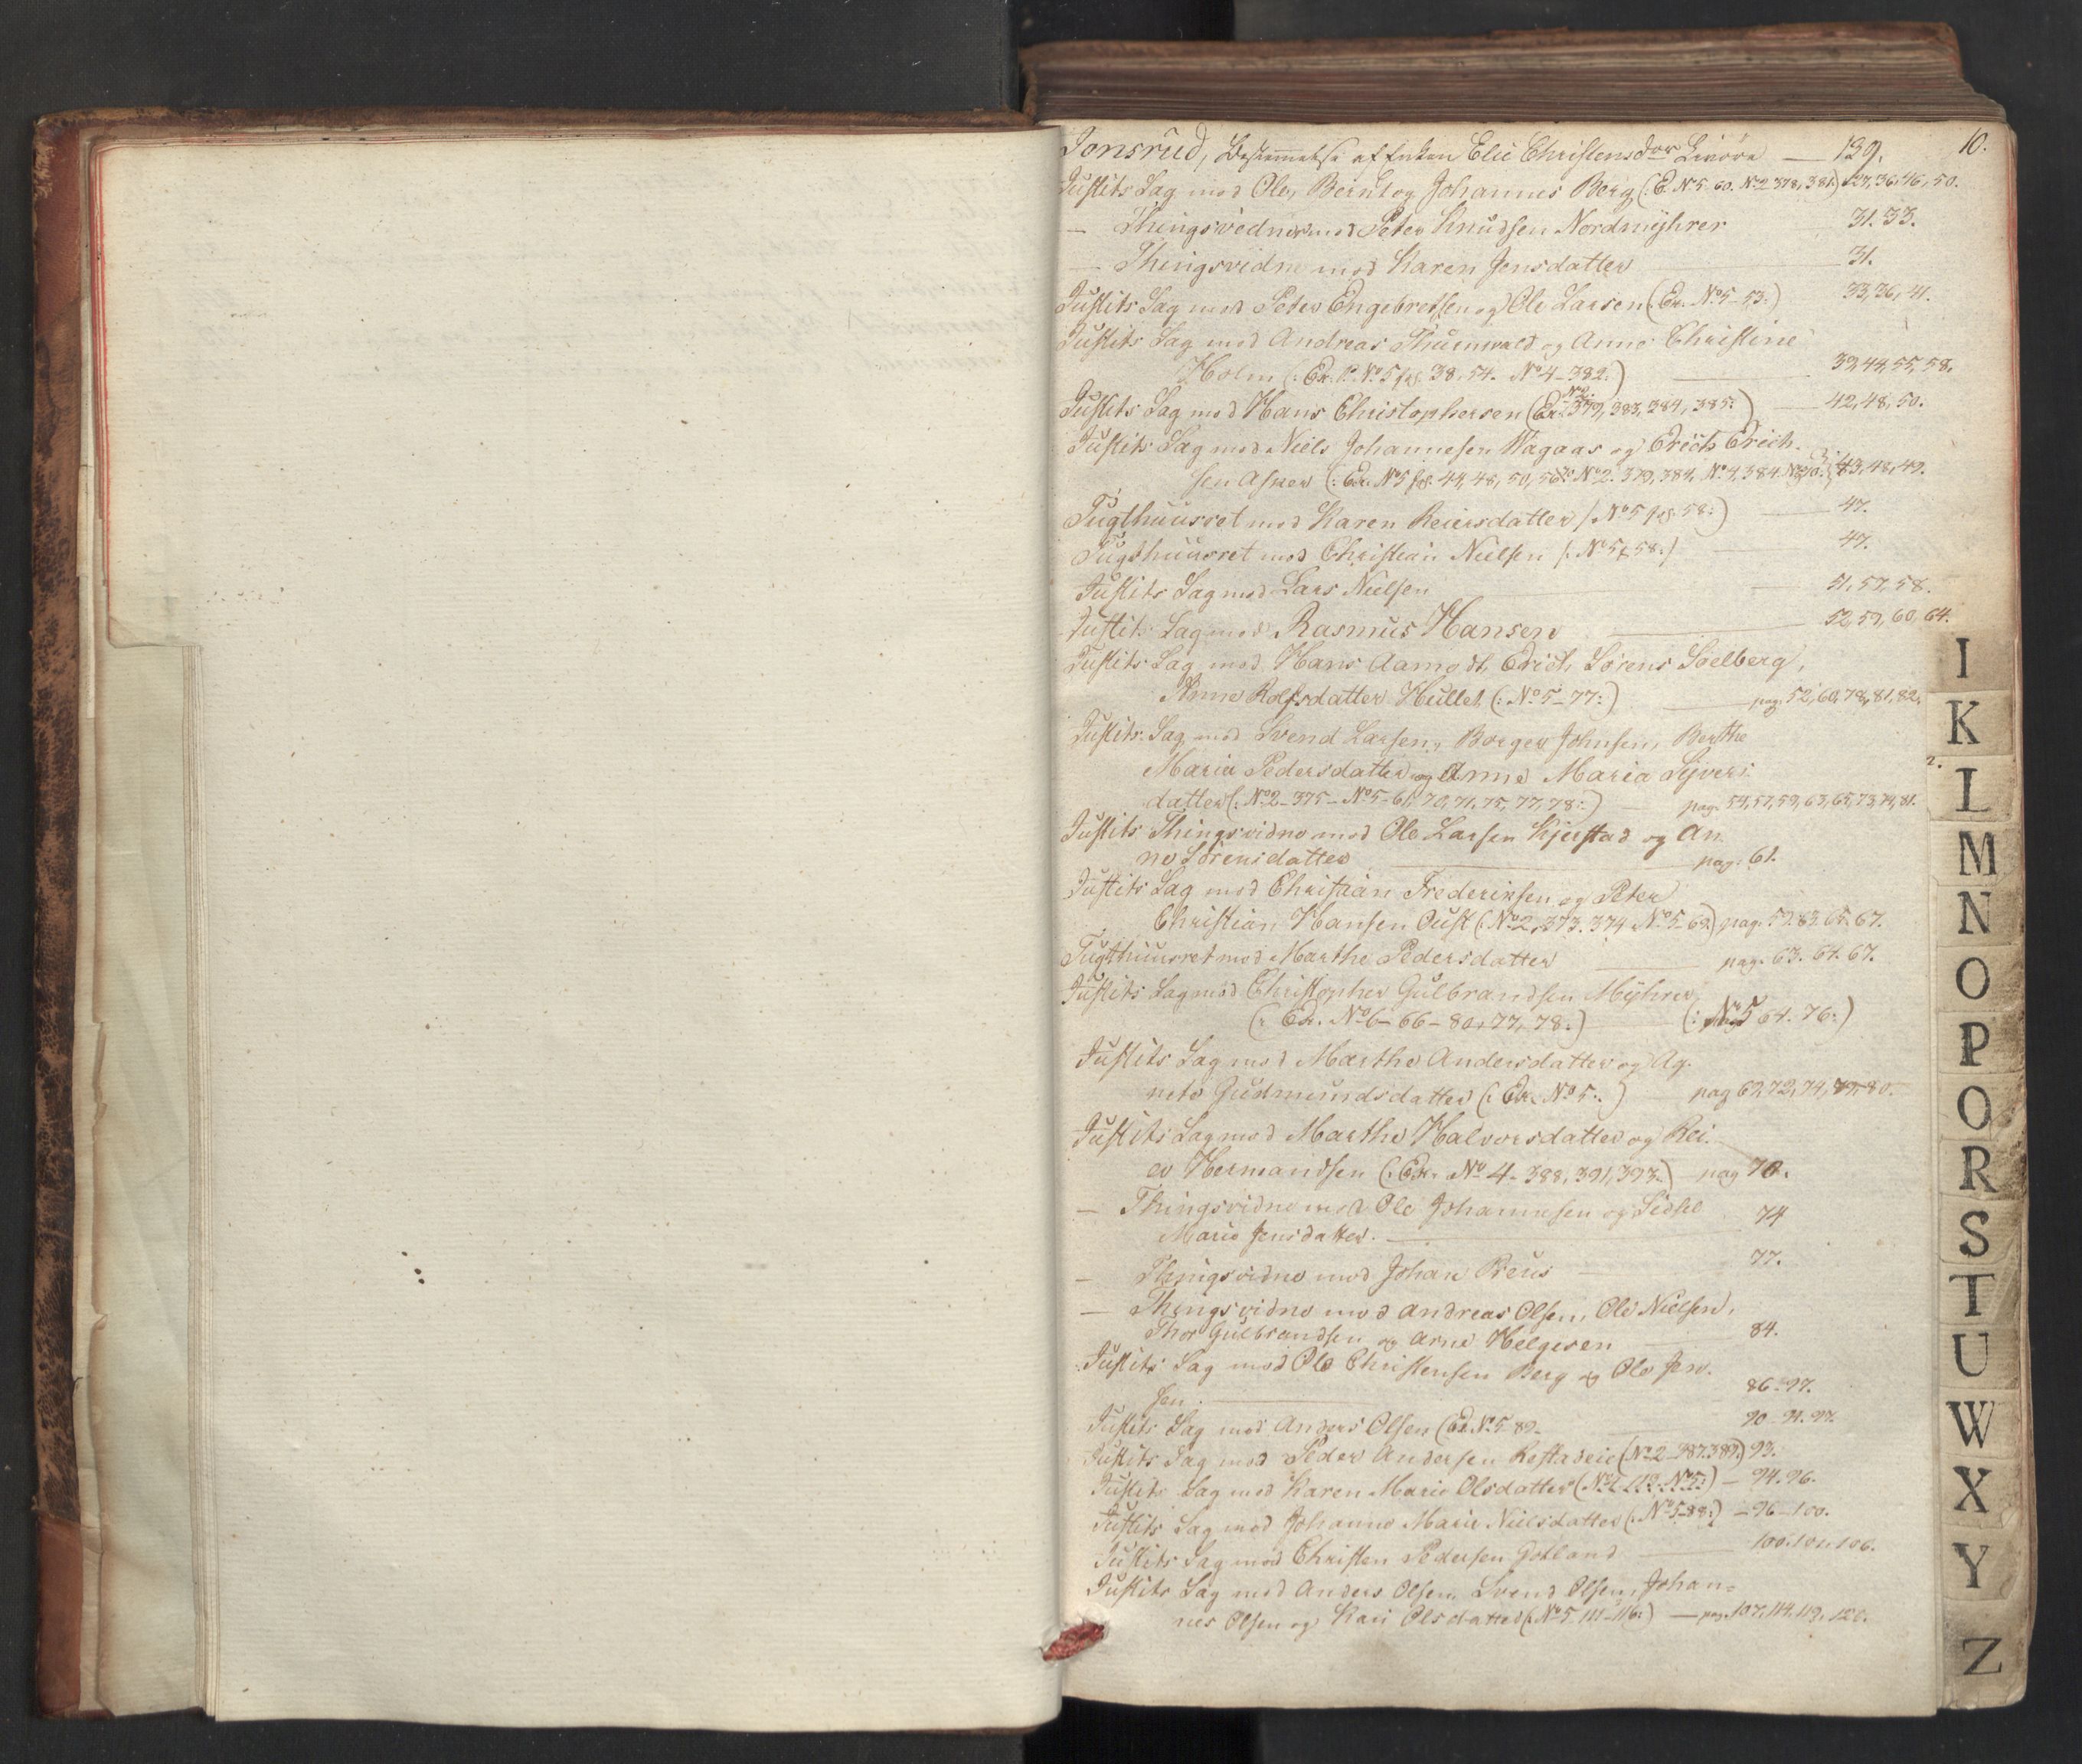 10.
Jonsrud, Bestemmelse af Enken Elie Christensdatr — 139.
Justits Sag mod Ole, Bernt og Johannes Berg (: E. No 5 60. No 2 378, 381:) 27, 36, 46, 50.
— Thingsvidne mod Peter Knudsen Nordmyhrer 31. 33.
— Thingsvidne mod Karen Jensdatter — 31.
Justits Sag mod Peter Engebretsen og Ole Larsen (: Ex. No 5 - 53:) 33, 36, 41.
Justits Sag mod Andreas Thurnwald og Anne Christine
Holm (: Ex. P. No 5 pag. 38, 54. No 4 - 382:) — 39, 44, 55, 58.
Justits Sag mod Hans Christophersen (Ex. No 2. 379, 383, 384, 385:) — 42, 48, 50.
Justits Sag mod Niels Johannesen Wagaas og Erich Erich-
sen Asker (: Ex. No 5 pag. 44, 48, 50, 56 No 2. 379, 384, No 4, 384 43, 48, 49.
Tugthuusret mod Karen Reiersdatter /: No 5 pag. 58:) — 47.
Tugthuusret mod Christian Nielsen /: No 5 f 58:/ — 47.
Justits Sag mod Lars Nielsen — 51, 57, 58.
Justits Sag mod Rasmus Hansen — 52, 59, 60, 64.
Justits Sag mod Hans Aamodt, Erich Sørens Soelberg,
Anne Rolfsdatter Hullet (: No 5 - 77:) — pag. 52, 60, 78, 81, 82.
Justits Sag mod Svend Larsen, Borger Johnsen, Berthe
Maria Pedersdatter og Anne Maria Syvers-
datter (: No 2 - 375 - No 5 - 61, 70, 71, 75, 77, 78:) — pag. 54, 57, 59, 63, 65, 73, 74, 81.
Justits Thingsvidne mod Ole Larsen Kjerstad og An-
ne Sørensdatter — pag. 61.
Justits Sag mod Christian Frederiksen og Peter
Christian Hansen Oust (: No 2, 373. 374 No 5 - 69) pag. 59. 63. 65. 67.
Tugthuusret mod Marthe Pedersdatter — pag. 63. 64. 67.
Justits Sag mod Christopher Gulbrandsen Myhrer
(: Ex. No 6 - 66 - 80, 77, 78:) — (: No 5 64. 76:)
Justits Sag mod Marthe Andersdatter og Ag-
nete Gudmundsdatter (: Ex. No 5:) pag 69, 72, 74, 77, 80.
Justits Sag mod Marthe Halvorsdatter og Rei-
er Hermandsen (: Ex. No 4 - 388, 391, 393:) pag 70.
— Thingsvidne mod Ole Johannesen og Sidsel 74
Marie Jensdatter. —
— Thingsvidne mod Johan Preus 77.
— Thingsvidne mod Andreas Olsen, Ole Nielsen,
Thor Gulbrandsen og Arne Helgesen 84.
Justits Sag mod Ole Christensen Berg og Ole Jen-
sen. — 86 - 97.
Justits Sag mod Anders Olsen (Ex. No 5 - 89 - 90 - 91. 97.
Justits Sag mod Peder Andersen (No 2 - 387. 389:) 93.
Justits Sag mod Karen Marie Olsdatter — 94. 96.
Justits Sag mod Johanne Marie Nielsdatter (: No 5 - 88:) — 96 - 100.
Justits Sag mod Christen Pedersen Gotland — 100. 101. 106.
Justits Sag mod Anders Olsen, Svend Olsen, Johan-
nes Olsen og Kari Olsdatter (: No 5. 111 - 116:) — pag. 107, 114, 119, 120.
I
K
2.
L
M
N
O
P
Q
R
S
T
U
W
X
Y
Z